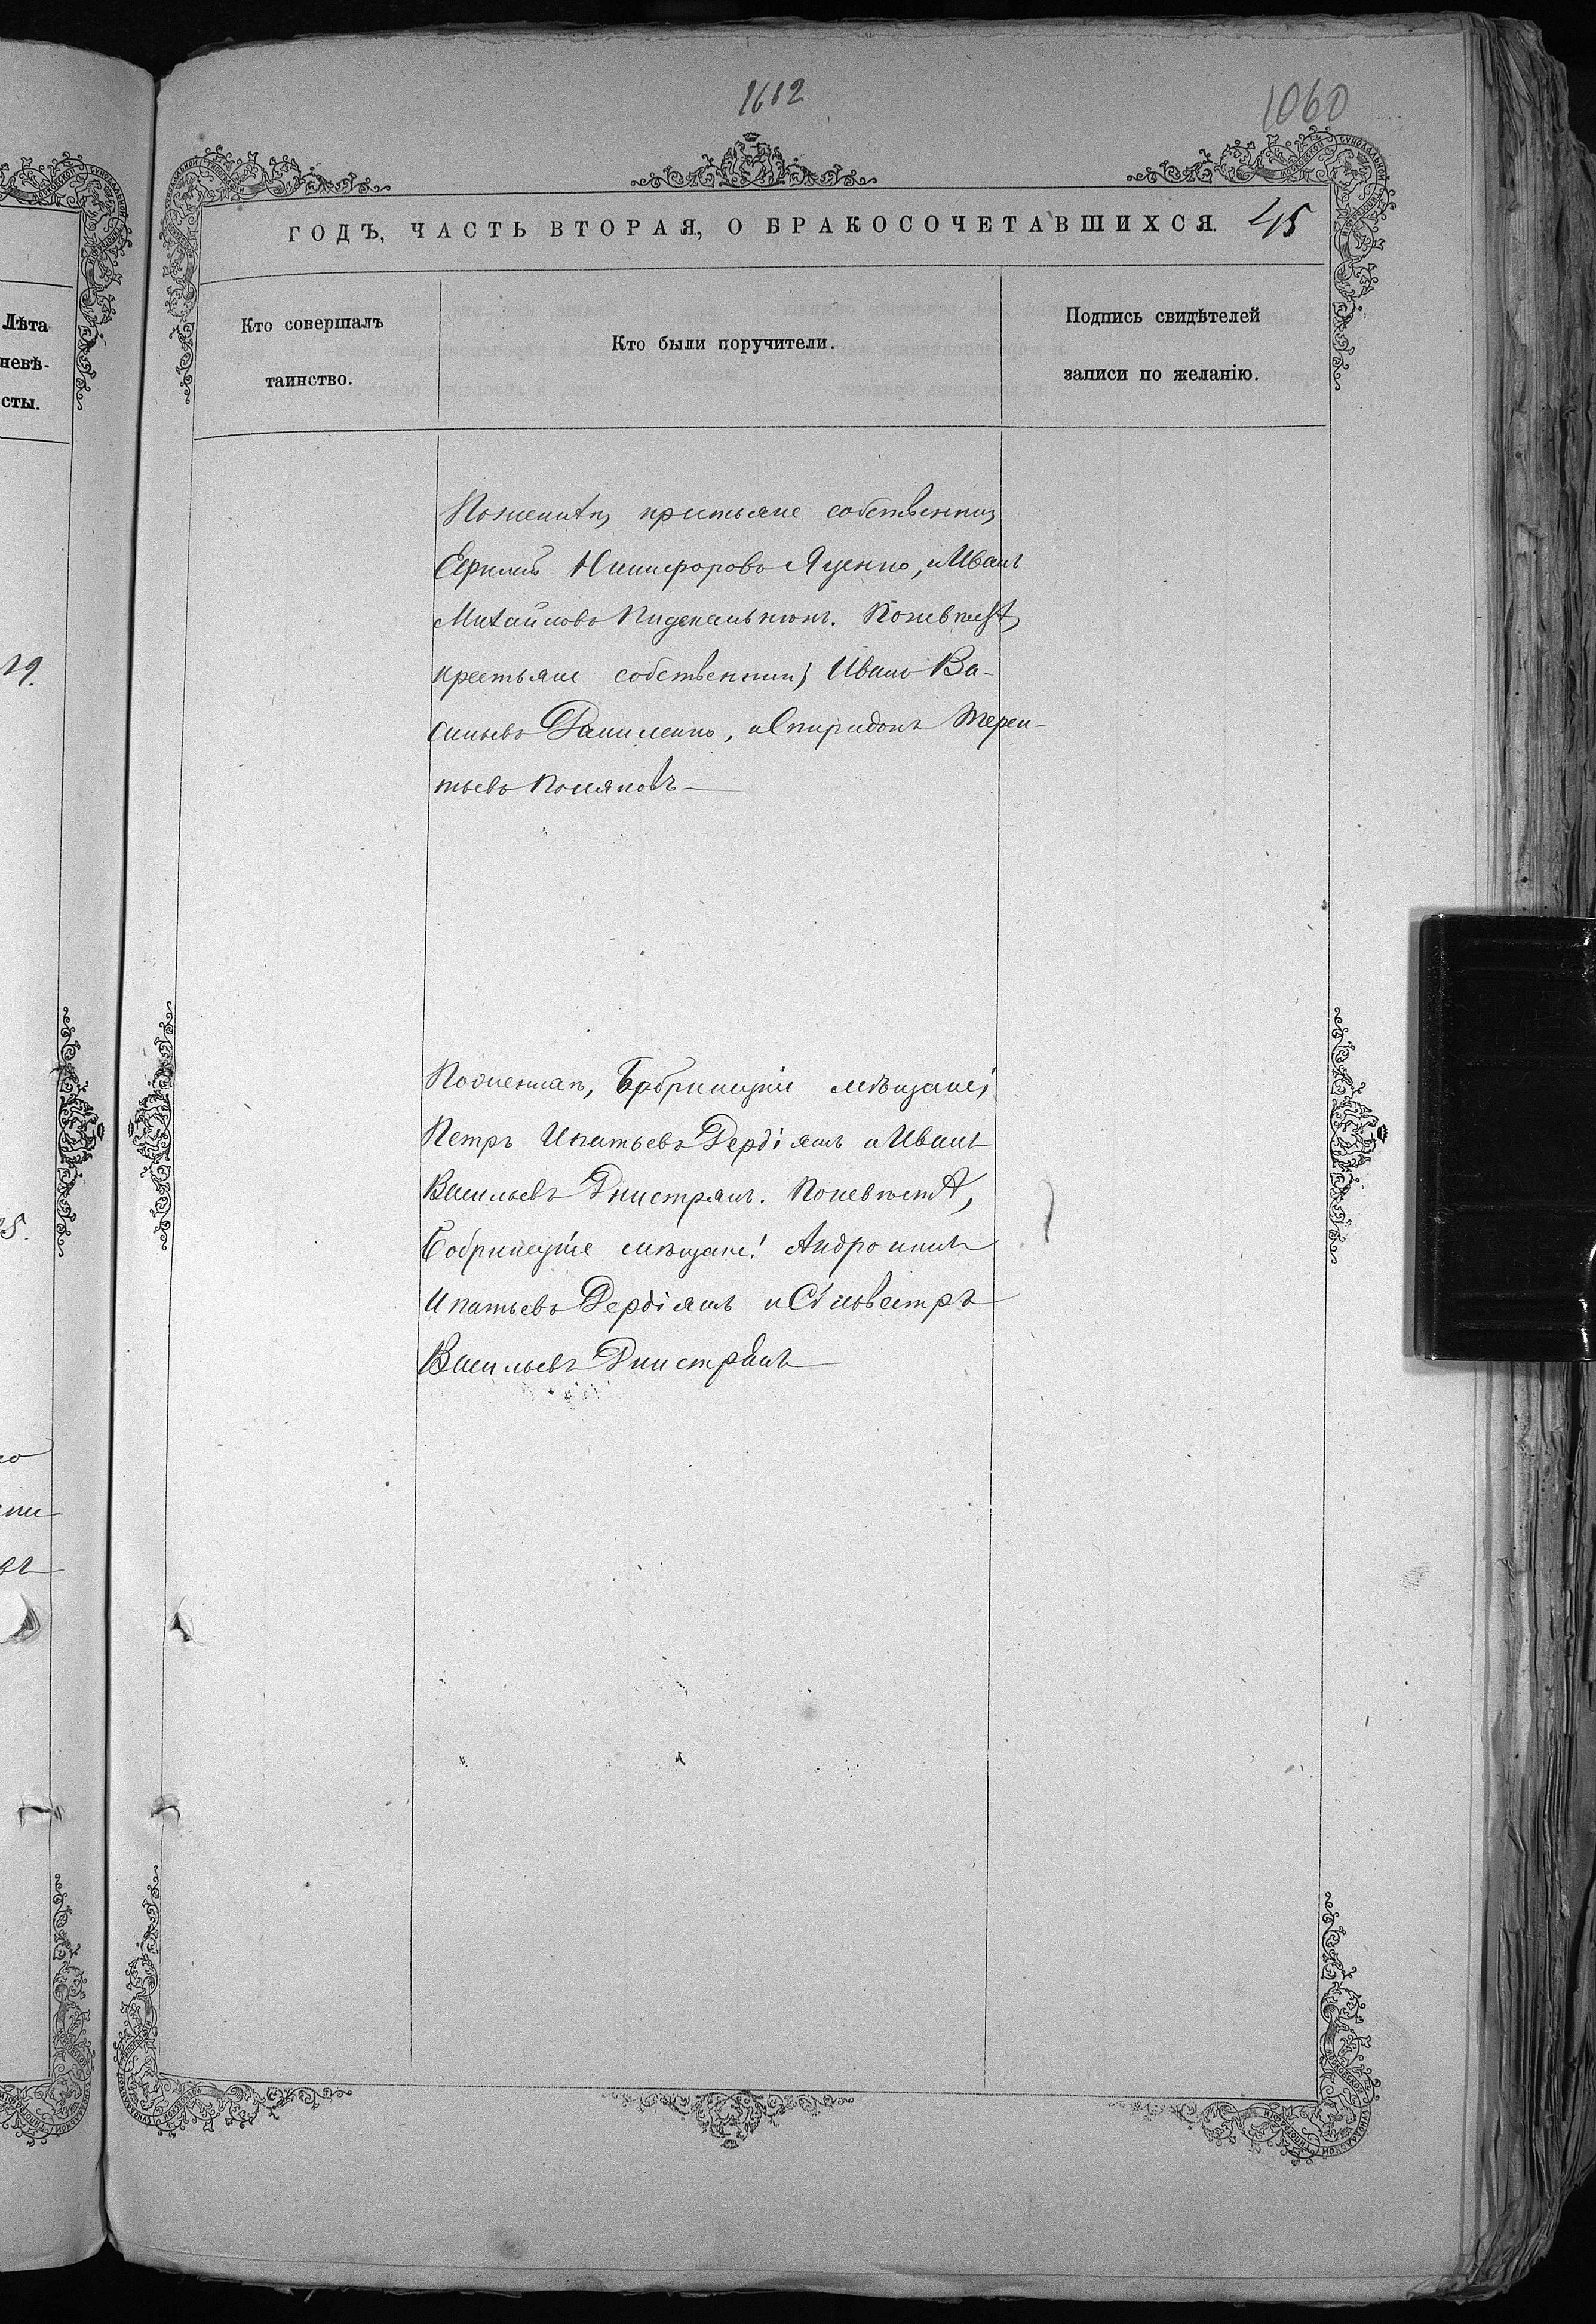 1612
1060
ГОДЪ, ЧАСТЬ ВТОРАЯ, О БРАКОСОЧЕТАВШИХСЯ. 45
Лѣта
невѣ-
сты.
Кто совершалъ
таинство.
Кто были поручители.
Подпись свидѣтелей
записи по желанію.
По жених, крестьяне собственни,
Никифоровъ Яценко, и Иванъ
Михайловъ По невѣст,
19.
крестьяне собственник, Иванъ Ва-
сильевъ Даниленко, и Спиридонъ Терен-
тьевъ Поляковъ
По жених, Бобринецкіе мѣщане,
Петръ Ипатьевъ Дердіяшъ и Иванъ
Васильевъ Днистрянъ. По невѣст,
Бобринецкіе мѣщане: Андроникъ
Ипатьевъ Дердіяшъ и Сильвестръ
Васильевъ Днистрянъ